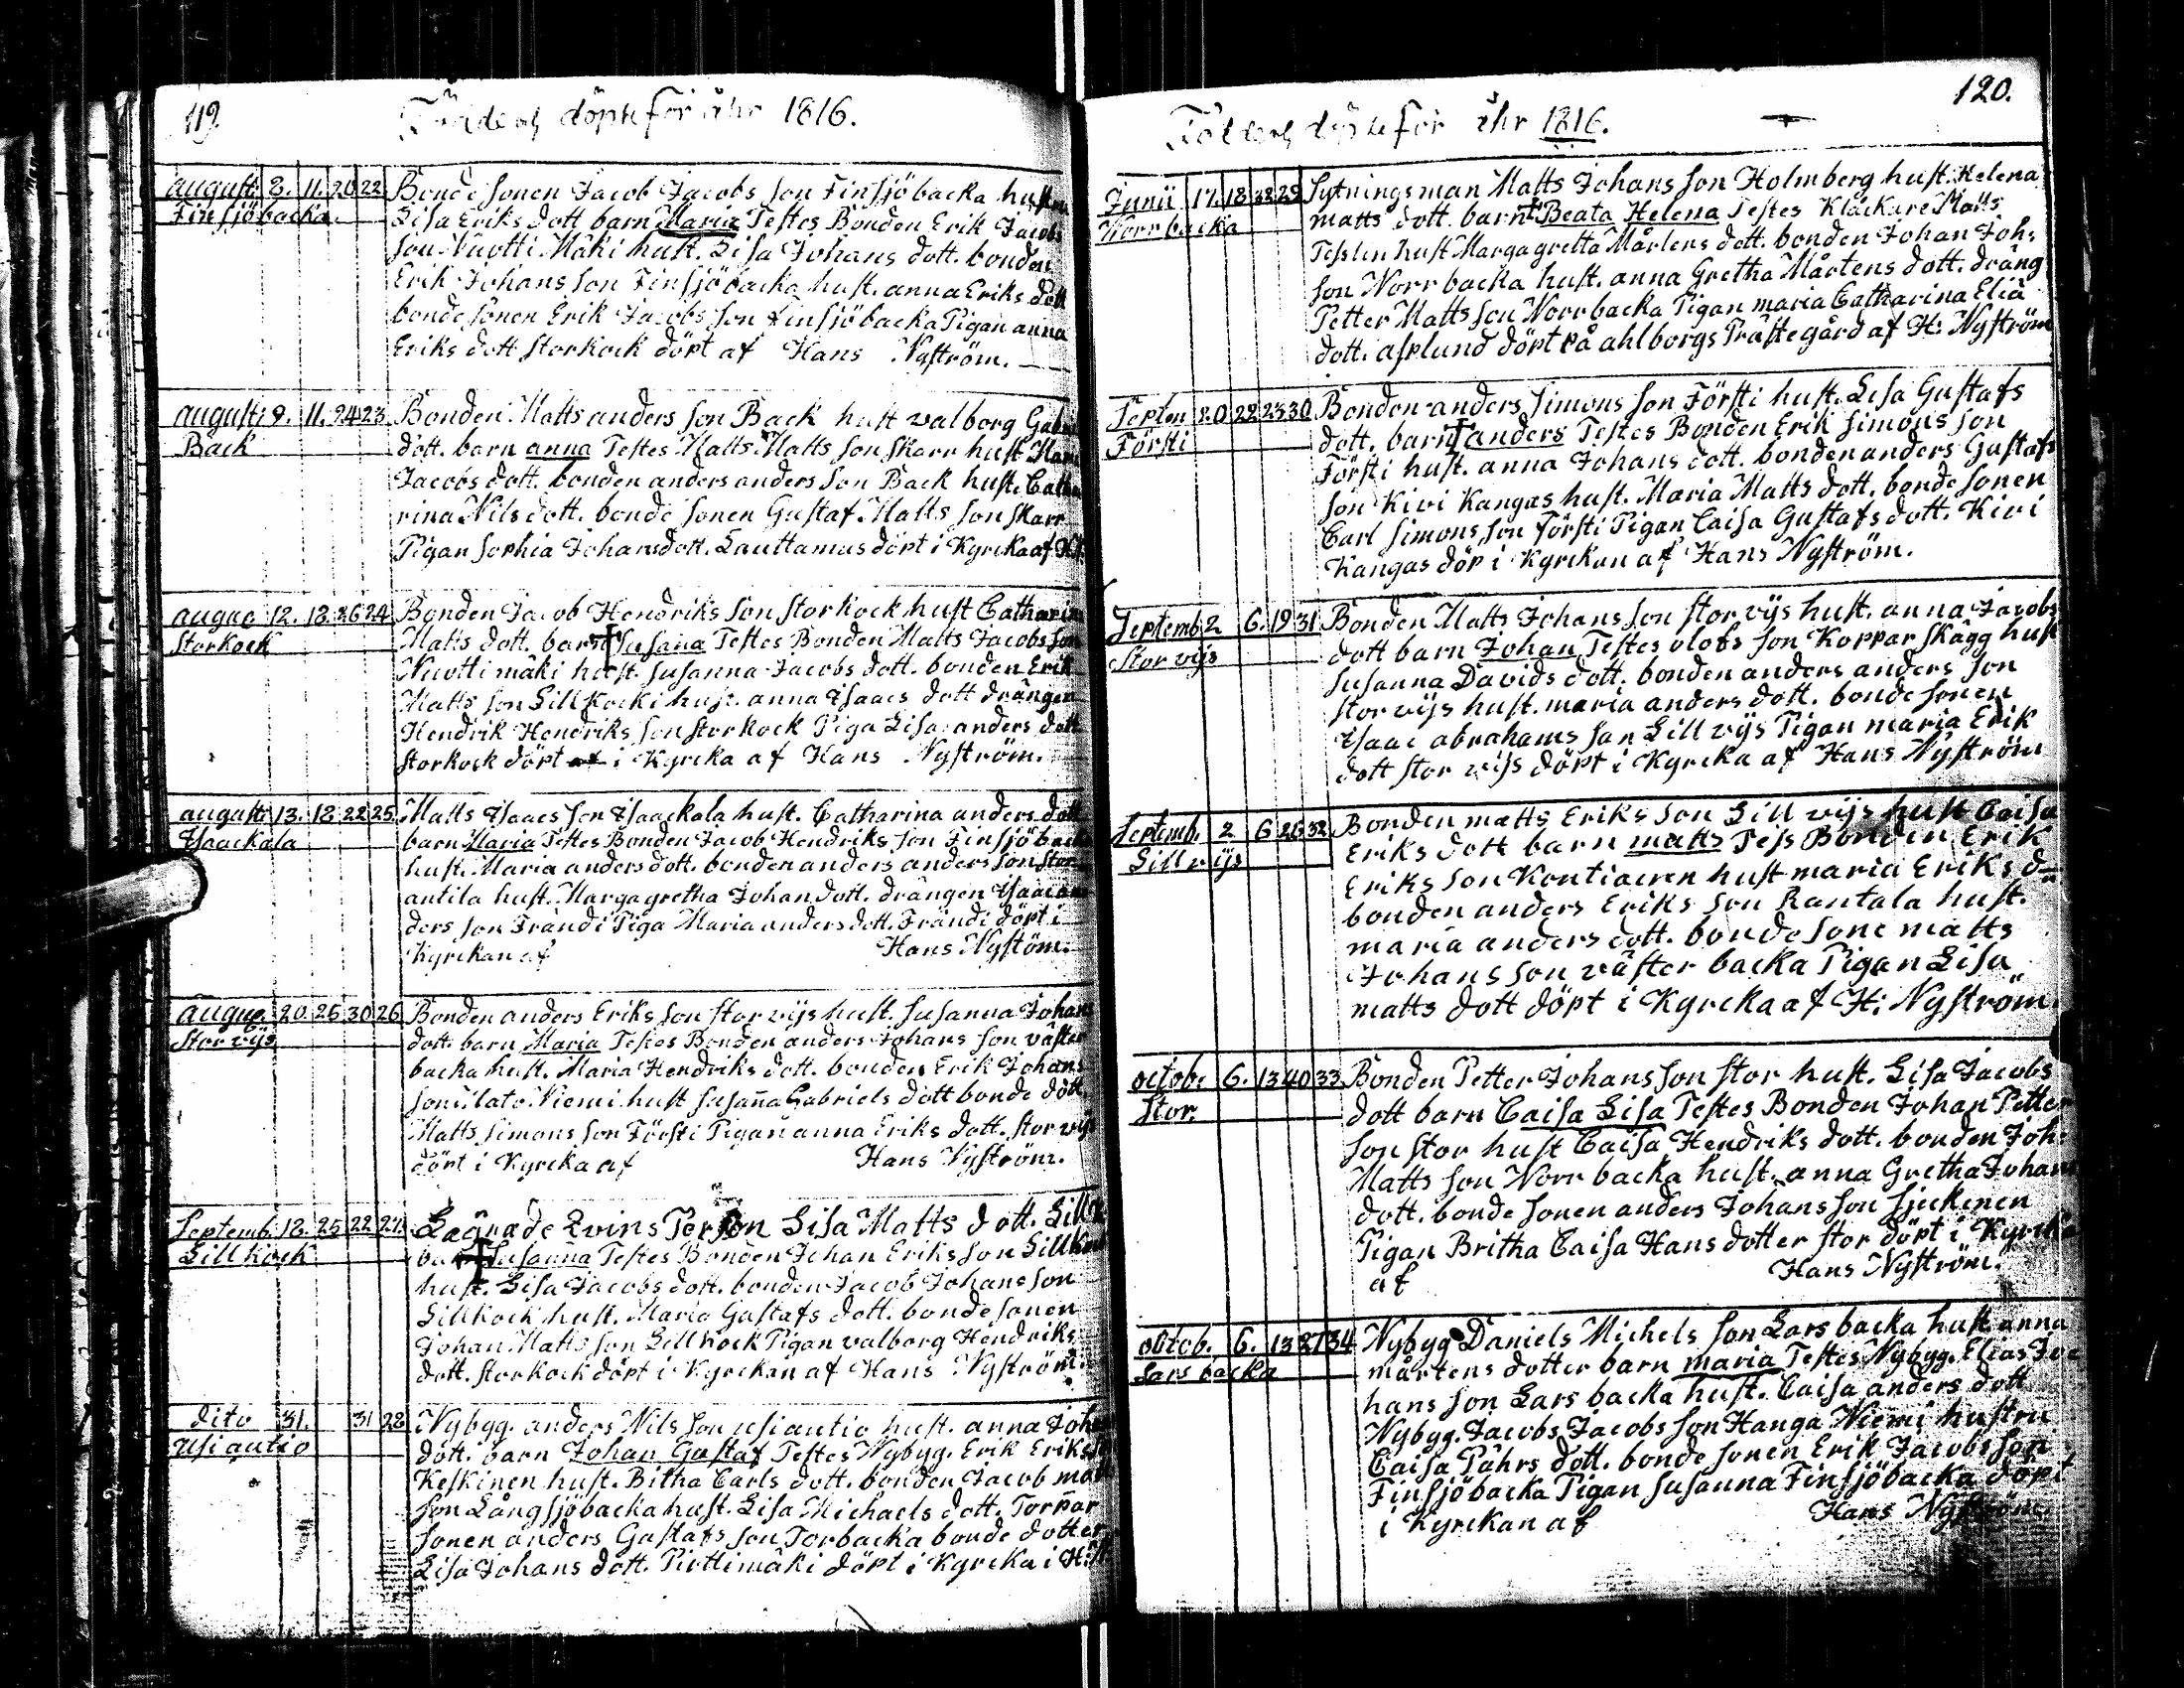 119.
Födde och döpte för åhr 1816.
augusti 8. 11. 20 22 Bonde sonen Jacob Jacobs son Finsjöbacka hustru
Finsjöbacka Lisa Eriks dott barn Maria Testes Bonden Erik Jacobs
son Nuotti Mäki hust. Lisa Johans dott. bonden
Erik Johans son Finsjöbacka hust. anna Eriks dott
bonde sonen Erik Jacobs son Finsjöbacka Pigan anna
Eriks dott storkock döpt af Hans Nyström.
augusti 9. 11. 24 23 Bonden Matts anders son Back hust valborg
Back dott. barn anna Testes Matts Matts son Skarr hust
Jacobs dott. bonden anders anders son Back hust. Catha
rina Nils dott. bonde sonen Gustaf Matts son Skarr
Pigan sophia Johansdott. Lauttamus döpt i Kyrcka af
12. 18. 26 24 Bonden Jacob Hendriks son storkock hust Catharina
storkock Matts dott. barn † Susana Testes Bonden Matts Jacobs son
Nuotti mäki hust. susanna Jacobs dott. bonden Erik
Matts son Lillkock hust. anna Isaacs dott drängen
Hendrik Hendriks son storkock Piga Lisa anders dott
storkock döpt af i Kyrcka af Hans Nyström.
augusti 13. 18 22 25. Matts Isaacs son Isaackala hust. Catharina anders dott
Isaackala barn Maria Testes Bonden Jacob Hendriks son Finsjöbacka
hust. Maria anders dott. bonden anders anders son stor
antila hust. Margagretha Johan dott. drängen Isaac an
ders son Frändi Piga Maria anders dott. Frändi döpt i
Kyrckan af Hans Nyström.
20. 25 30 26 Bonden anders Eriks son stor vijs hust. susanna Johans
Stor vijs dott. barn Maria Testes Bonden anders Johans son väster
backa hust. Maria Hendriks dott. bonden Erik Johans
son Ulato Niemi hust susanna Gabriels dott bonde dott.
Matts simons son Försti Pigan anna Eriks dott. stor vijs
döpt i Kyrcka af Hans Nyström.
Septemb. 18. 25 22 27. Lägrade Qvins Person Lisa Matts dott.
Lillkock † Susanna Testes Bonden Johan Eriks son Lillkock
hust. Lisa Jacobs dott. bonden Jacob Johans son
Lillkock hust. Maria Gustafs dott. bonde sonen
Johan Matts son Lillkock Pigan valborg Hendriks
dott. storkock döpt i Kyrckan af Hans Nyström.
dito 31. 31 28 Nybyg. anders Nils son usiautio hust. anna
usiautio dott. barn Johan Gustaf Testes Nybyg. Erik Eriks
Keskinen hust. Bitha Carls dott. bonden Jacob matts
son Långsjöbacka hust. Lisa Michaels dott. Torpar
sonen anders Gustafs son Torbacka bonde dotter
Lisa Johans dott. Piottimäki döpt i Kyrcka i
120.
Födde och döpte för åhr 1816.
Junii 17. 18. 38 29 Sytningsman Matts Johans son Holmberg hust. Helena
Norrbacka matts dott. barn † Beata Helena Testes Klåckare Matts
hust Margagretta Mårtens dott. bonden Johan Joh.
son Norrbacka hust. anna Gretha Mårtens dott. dräng
Petter Matts son Norrbacka Pigan maria Catharina Eliä
dott. asplund döpt på ahlborgs Prästegård af H: Nyström
20 22 25 30 Bonden anders simons son Försti hust. Lisa Gustafs
Försti dott. barn † anders Testes Bonden Erik simons son
Försti hust. anna Johans dott. bonden anders Gustafs
son Kivi Kangas hust. Maria Matts dott. bonde sonen
Carl simons son Försti Pigan Caisa Gustafs dott. Kivi
Kangas döp i Kyrckan af Hans Nyström.
Septemb 2 6. 19 31 Bonden Matts Johans son stor vijs hust. anna Jacobs
stor vijs dott barn Johan Testes olofs son Koppar skägg hust
susanna Davids dott. bonden anders anders son
stor vijs hust. maria anders dott. bonde sonen
Isaac abrahams son Lill vijs Pigan maria Erik
dott stor vijs döpt i Kyrcka af Hans Nyström
Septemb. 2 6 26 32 Bonden matts Eriks son Lill vijs hust Caisa
Lill vijs Eriks dott barn matts Tess Bonden Erik
Eriks son Kontiainen hust maria Eriks d
bonden anders Eriks son Rantala hust.
maria anders dott. bonde sone matts
Johans son väster backa Pigan Lisa
matts dott döpt i Kyrcka af H: Nyström
octob: 6. 13 40 33 Bonden Petter Johans son stor hust. Lisa Jacobs
Stor. dott barn Caisa Lisa Testes Bonden Johan Petter
son stor hust Caisa Hendriks dott. bonden Joh:
Matts son Norrbacka hust. anna Gretha Johans
dott. bonde sonen anders Johans son sjuckinen
Pigan Britha Caisa Hans dotter stor döpt i Kyrcka
af Hans Nyström.
octob. 6. 13 27 34 Nybyg Daniels Michels son Lars backa hust. anna
Lars backa mårtens dotter barn maria Testes Nybyg. Elias Jo
hans son Lars backa hust. Caisa anders dott
Nybyg. Jacobs Jacobs son Hanga Niemi hustru
Caisa Påhrs dott. bonde sonen Erik Jacobs son
Finsjöbacka Pigan susanna Finsjöbacka döpt
i Kyrckan af Hans Nyström